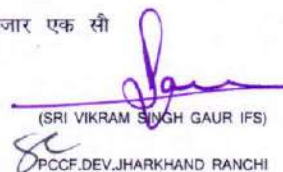 जार एक सौ
(SRI VIKRAM SINGH GAUR IFS)
PCCF.DEV.JHARKHAND RANCHI